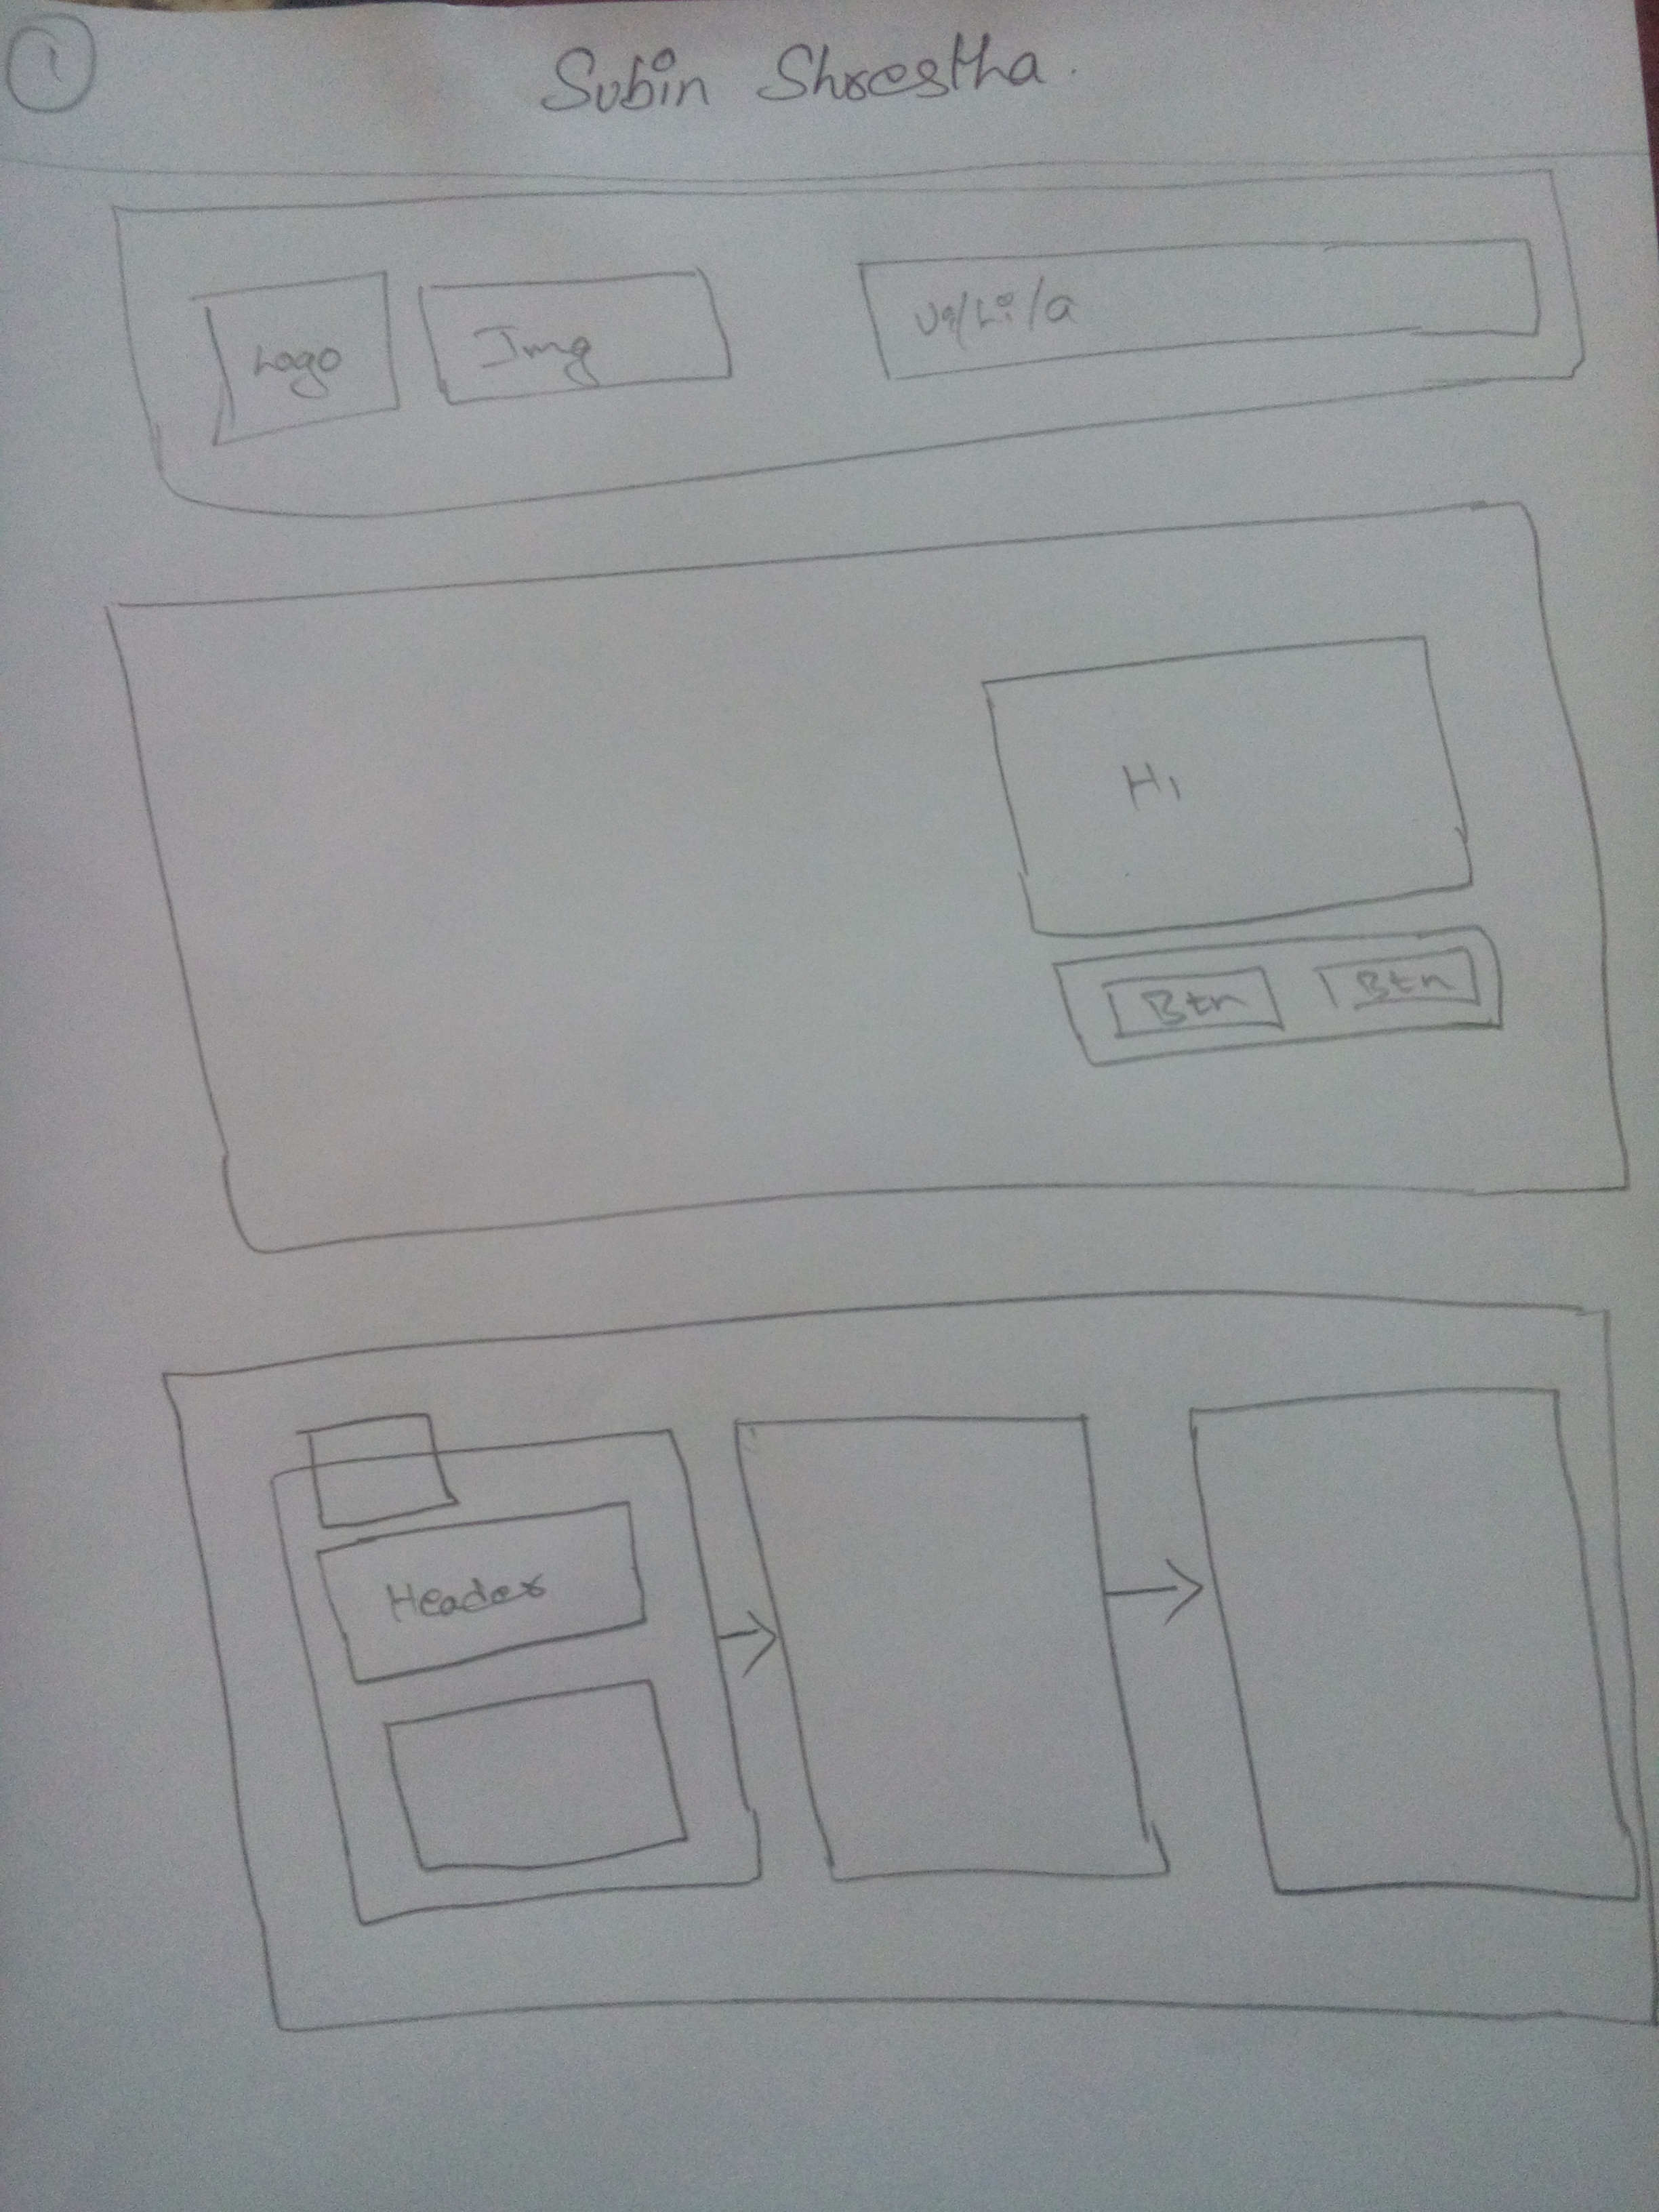 1
Subin Shrestha.
Logo
Img
Ul/Li/a
H1
Btn Btn
Header